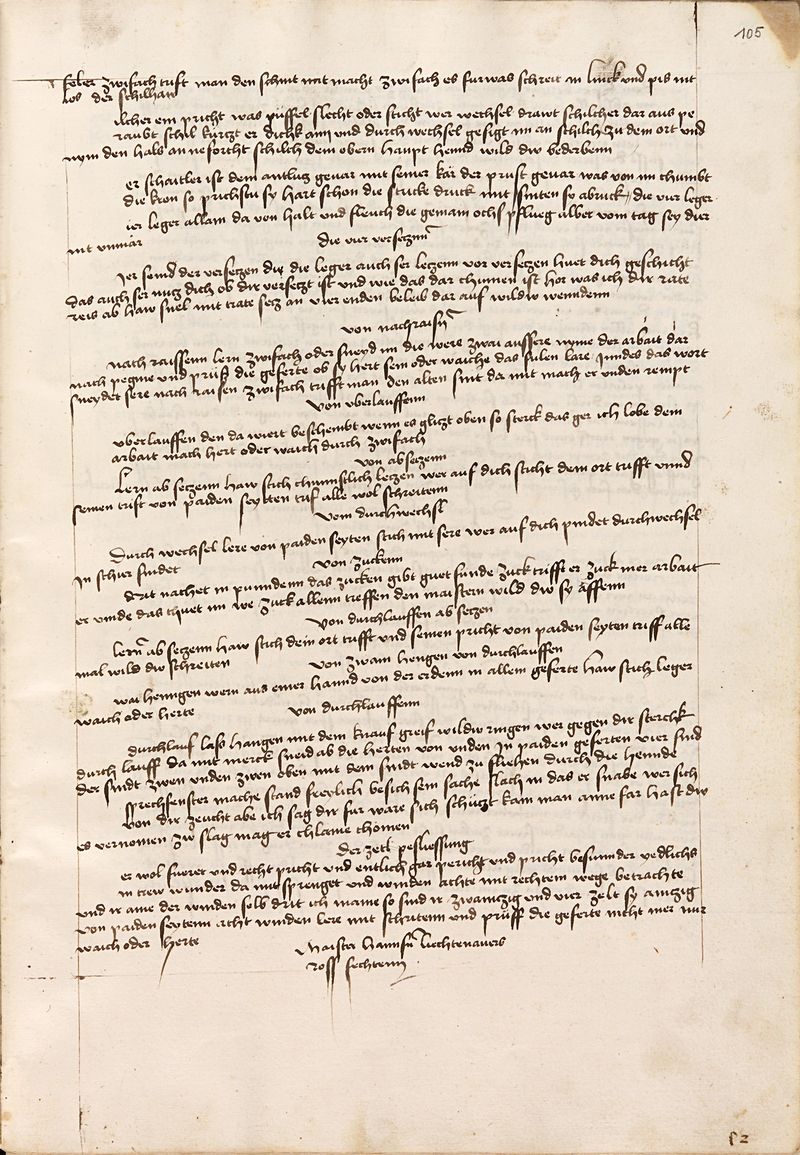 105
keler zwifach trift man den schnit mit macht zwifach es furwas schreit in linck und pis nit
los der schilhaw
ilcher ein pricht was püffel slecht oder sticht wer wechsel drawt schilcher dar aus pe
raubt schil kurtzt er dich an und durch wechsel gesigt im an schilch zu dem ort und
nym den hals anne forcht schilch dem obern haupt hennd wild dw bederbenn
er schaitler ist dem antlutz gevar mit seiner kar der prust gevar was von im chumbt
die kron so prichstu sy hart schon die stucke druck mit sniten sy abruck die vier leger
ier leger allain da von halt und fleuch die gemain ochs pflueg alber vom tag sey dier
nit unmär
die vier versetzenn
Ier seind der versetzen die die leger auch ser letzenn vor versetzen huet dich geschicht
das auch ser mug dich ob dir versetzt ist und wie das dar chumen ist hor was ich dir rate
reis ab haw snel mit trate setz an vier enden beleib dar auf wildw wenndenn
von nachraisn
nach raissenn lern zwifach oder sneyd in die were zwai aussere nyme der arbait dar
nach pegine und prüff die geferte ob sy hert sein oder waiche das fulen lare Inndes das wort
sneydet sere nach raisen zwifach trifft man den alten snit da mit mach er unden rempt
Von uberlauffenn
uberlauffen den da wiert beschembt wenn es glitzt oben so sterck das ger ich lobe dein
arbait mach hert oder waich durch zwifach
von absetzenn
Lern ab setzenn haw stich chunnstlich letzen wer auf dich sticht dein ort trifft unnd
seinen trift von paiden seytten trif alle wol schreitenn
Vom durchwechsl
Durch wechsel lere von paiden seyten stich mit sere wer auf dich pindet durchwechsel
In schier findet
von zuckenn
drit nachet in punndenn das zucken gibt guet funde zuck trifft er zuck mer arbait
er vinde das thuet im we zuck allenn treffen den maistern wild dw sy äffenn
Von durchlauffen ab setzen
lern ab setzenn haw stich dein ort trifft und seinen pricht von paiden seyten triff alle
mal wild dw schreiten
von zwain hengen von durchlauffen
wai henngen wern aus einer hannd von der erdenn in allem geferte haw stich leger
waich oder herte
von durchlauffenn
durchlauf lass hangen mit dem knauf greif wildw ringen wer gegen dir sterck
durch lauff da mit merck sneid ab die herten von unden In paiden geferten vier sind
der sindt zwen unden zwen oben mit dem sindt wend zu fliehen durch die hennde
sprechfenster mache stand freylich besich sein sache slach in das er snabe wer sich
von dir zeucht abe ich sag dir fur ware sich schutzt kain man anne far hast dw
es vernomen zw slag mag er chlaine chomen
Der zetl pesliessung
er wol fueret und recht pricht und entlich gar pericht und pricht besunnder yedlichs
in trew wunder da mit sprenget und winden achte mit rechtem wege betrachte
und ir aine der winden selb drit ich maine so sind ir zwainczig und vier zelt sy aintzig
von paiden seytenn acht winden lere mit schritenn und prüff die geferte nicht mer nur
waich oder herte
Maister Hannsn Liechtenauers
ross fechtenn